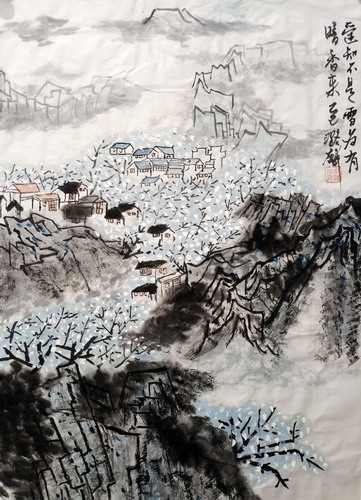 遥知不是雪为有
暗香来